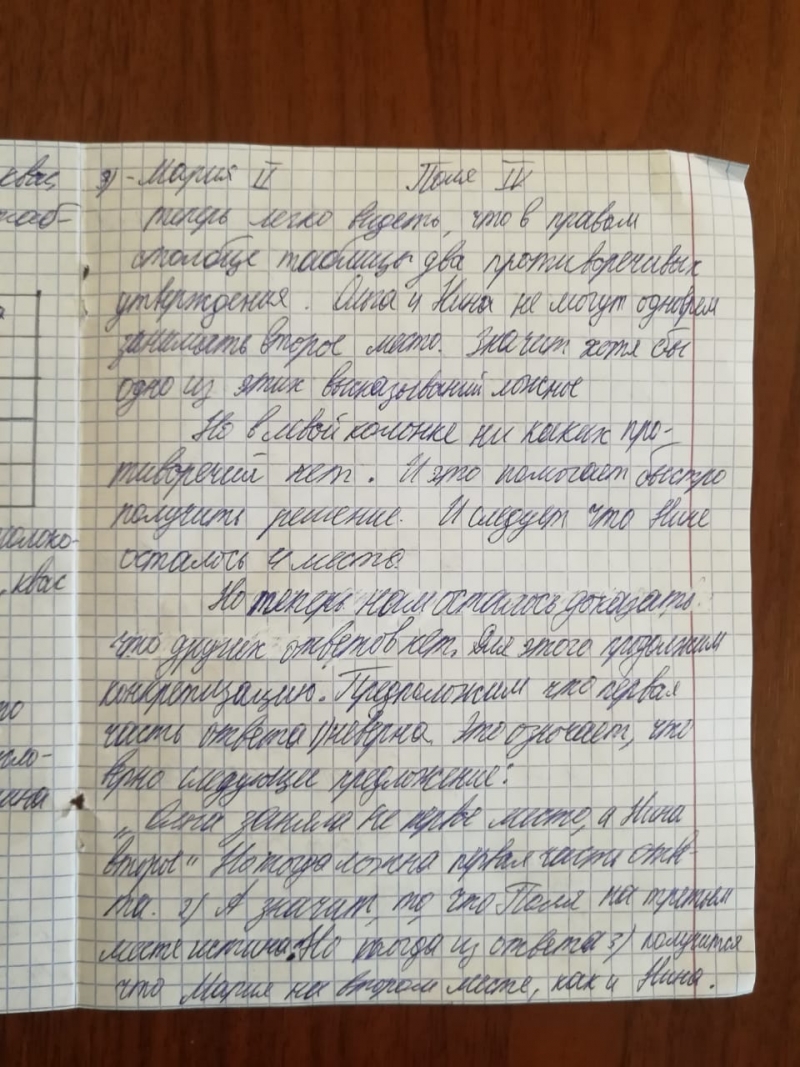 квас
таб-
3) - Мария II Поля IV
теперь легко видеть, что в правом
столбце таблицы два противоречивых
утверждения. Ольга и Нина не могут одноврем
занимать второе место. Значит хотя бы
одно из этих высказываний ложное
Но в левой колонке ни каких про-
тиворечий нет. И это помогает быстро
получить решение. И следует что Нине
осталось 4 место.
Но теперь нам осталось доказать
что других ответов нет. Для этого продолжим
конкретизацию. Предположим что первая
часть ответа 1) неверна. Это означает, что
верно следующее предложение:
„Ольга заняла не первое место, а Нина
второе" Но тогда ложна первая часть отве-
та. 2) А значит, то, что Поля на третьем
месте истина. Но тогда из ответа 3) получится
что Мария на втором месте, как и Нина.
молоко-
, квас
то
ина